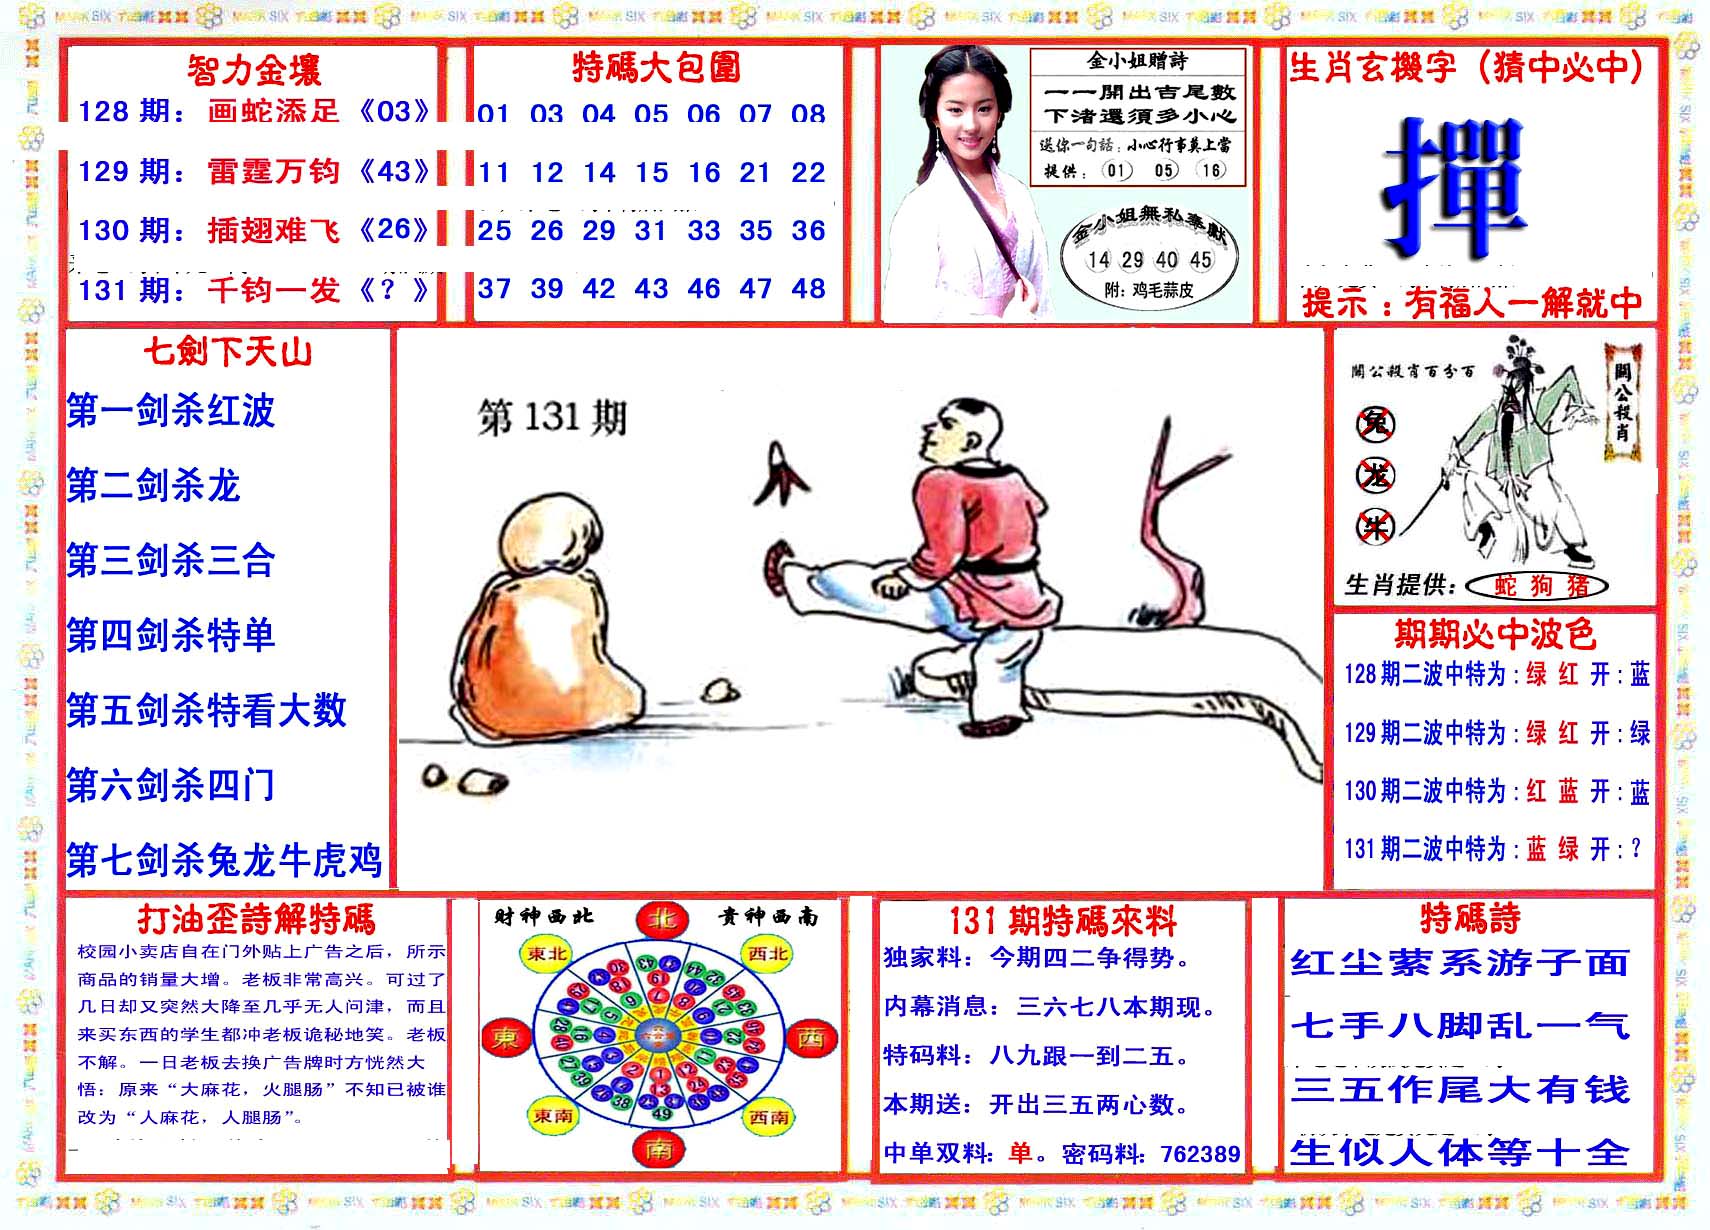 智力金壤
128 期：画蛇添足《03》
129 期：雷霆万钧《43》
130 期：插翅难飞《26》
131 期：千钧一发《？》
特碼大包圍
01 03 04 05 06 07 08
11 12 14 15 16 21 22
25 26 29 31 33 35 36
37 39 42 43 46 47 48
金小姐贈詩
一一開出吉尾數
下渚還須多小心
送你一句話：小心行事莫上當
提供：01 05 16
金小姐無私奉獻
14 29 40 45
附：鸡毛蒜皮
生肖玄機字（猜中必中）
撣
提示：有福人一解就中
七劍下天山
第一剑杀红波
第二剑杀龙
第三剑杀三合
第四剑杀特单
第五剑杀特看大数
第六剑杀四门
第七剑杀兔龙牛虎鸡
第 131 期
關公殺肖百分百
關公殺肖
兔
龙
牛
生肖提供：蛇 狗 猪
期期必中波色
128 期二波中特为：绿 红 开：蓝
129 期二波中特为：绿 红 开：绿
130 期二波中特为：红 蓝 开：蓝
131 期二波中特为：蓝 绿 开：？
打油歪詩解特碼
校园小卖店自在门外贴上广告之后，所示
商品的销量大增。老板非常高兴。可过了
几日却又突然大降至几乎无人问津，而且
来买东西的学生都冲老板诡秘地笑。老板
不解。一日老板去换广告牌时方恍然大
悟：原来“大麻花，火腿肠”不知已被谁
改为“人麻花，人腿肠”。
財神西北
貴神西南
北
東北
西北
東
西
東南
西南
南
131 期特碼來料
独家料：今期四二争得势。
内幕消息：三六七八本期现。
特码料：八九跟一到二五。
本期送：开出三五两心数。
中单双料：单。密码料：762389
特碼詩
红尘萦系游子面
七手八脚乱一气
三五作尾大有钱
生似人体等十全